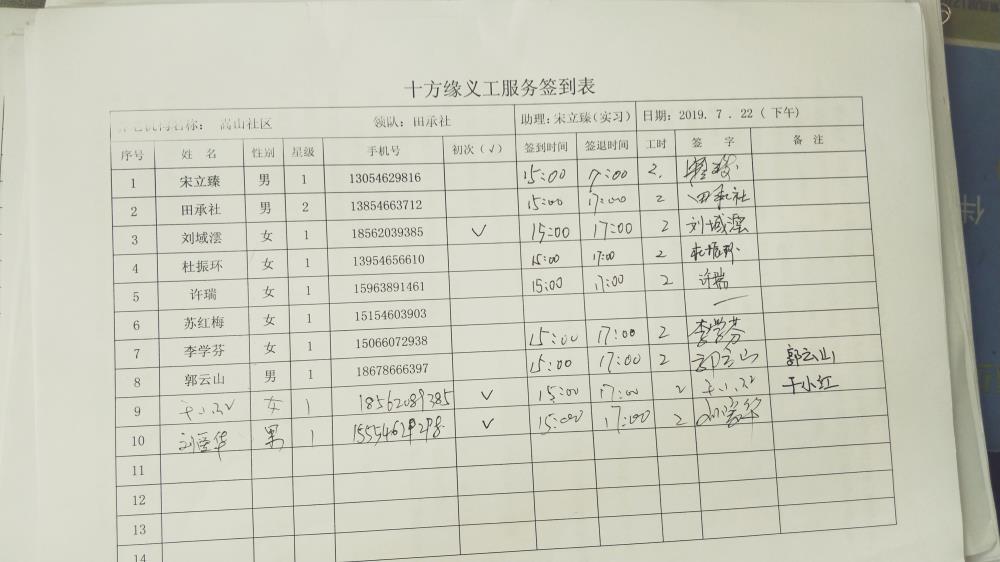 十方缘义工服务签到表
养老机构名称： 嵩山社区 领队：田承社 助理：宋立臻（实习） 日期：2019. 7 . 22（下午）
序号 姓 名 性别 星级 手机号 初次（√） 签到时间 签退时间 工时 签 字 备 注
1 宋立臻 男 1 13054629816 15:00 17:00 2.
2 田承社 男 2 13854663712 15:00 17:00 2 田承社
3 刘域澐 女 1 18562039385 √ 15:00 17:00 2 刘域澐
4 杜振环 女 1 13954656610 15:00 17:00 2 杜振环
5 许瑞 女 1 15963891461 15:00 17:00 2 许瑞
6 苏红梅 女 1 15154603903 —
7 李学芬 女 1 15066072938 15:00 17:00 2 李学芬
8 郭云山 男 1 18678666397 15:00 17:00 2 郭云山 郭云山
9 于小红 女 1 √ 15:00 17:00 2 于小红 于小红
10 男 1 √ 15:00 17:00 2
11
12
13
14